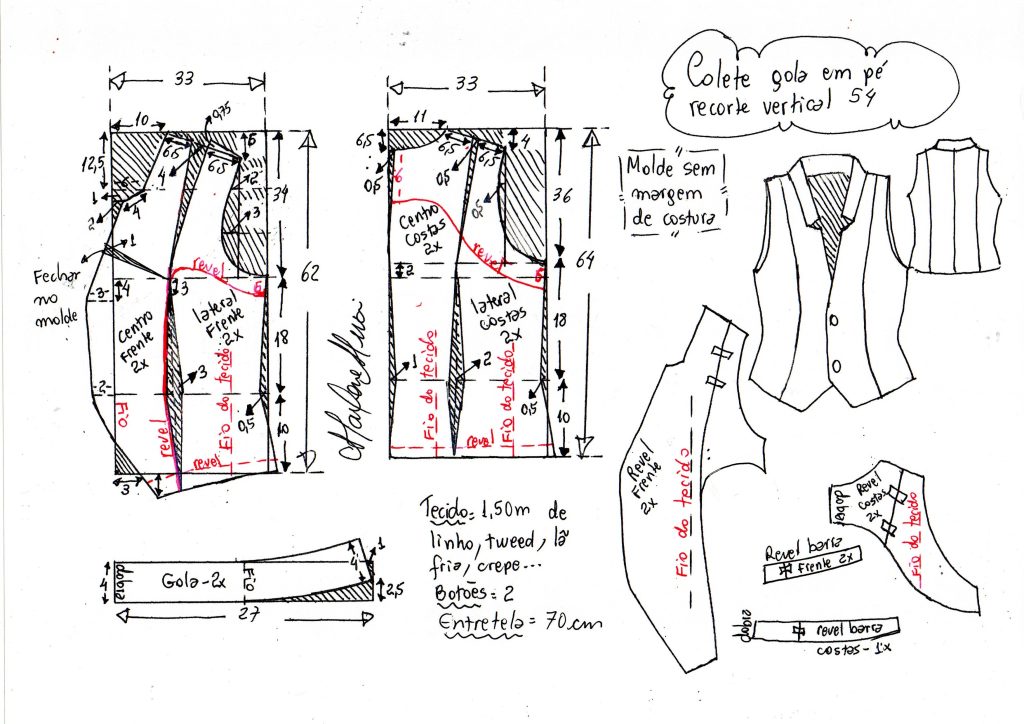 Colete gola em pé
recorte vertical 54
Molde sem
margem
de costura
33
10
0,75
6,5
6,5
6
12,5
6
4
2
34
1
4
2
3
1
62
Fechar
no
molde
revel
6
3
4
3
lateral
Frente
2x
Centro
Frente
2x
18
3
2
Fio
revel
Fio do tecido
0,5
10
revel
3
4
33
11
6,5
6,5
6,5
4
0,5
0,5
0,5
6
36
Centro
Costas
2x
revel
2
6
64
lateral
costas
2x
18
1
2
Fio do tecido
Fio do tecido
0,5
10
revel
4
dobra
Gola-2x
Fio
4
1
2,5
27
Tecido= 1,50m de
linho, tweed, lã
fria, crepe...
Botões= 2
Entretela= 70cm
Revel
Frente
2x
Fio do tecido
dobra
Revel
costas
2x
Fio do tecido
Revel barra
Frente 2x
dobra
revel barra
costas-1x